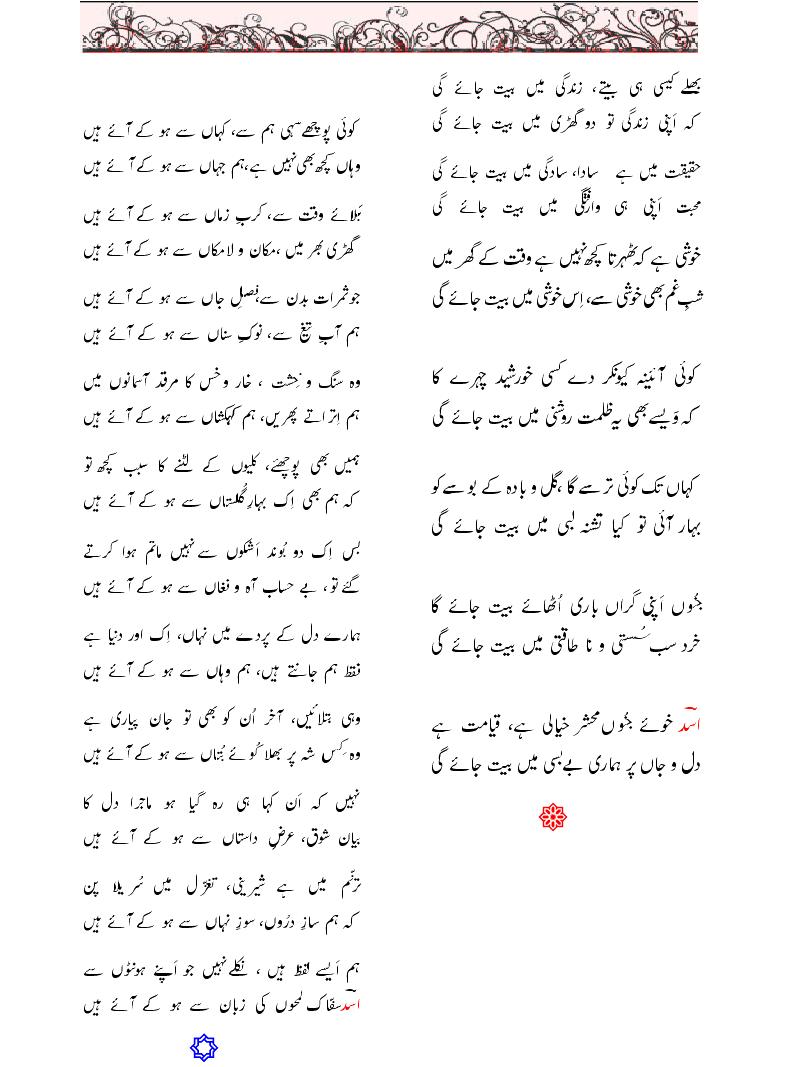 بھلے کیسی ہی بیتے، زندگی میں بیت جائے گی
کہ اَپنی زندگی تو دو گھڑی میں بیت جائے گی
حقیقت میں ہے سادا، سادگی میں بیت جائے گی
محبت اَپنی ہی وارفتگی میں بیت جائے گی
خوشی ہے کہ ٹھہرتا کچھ نہیں ہے وقت کے گھر میں
شبِ غم بھی خوشی سے، اِس خوشی میں بیت جائے گی
کوئی آئینہ کیونکر دے کسی خورشید چہرے کا
کہ وَیسے بھی یہ ظلمت روشنی میں بیت جائے گی
کہاں تک کوئی ترسے گا ،گل و بادہ کے بوسے کو
بہار آئی تو کیا تشنہ لبی میں بیت جائے گی
جنُوں اَپنی گراں باری اُٹھائے بیت جائے گا
خرد سب سُستی و نا طاقتی میں بیت جائے گی
اسؔد خوئے جنُوں محشر خیالی ہے، قیامت ہے
دل و جاں پر ہماری بے بسی میں بیت جائے گی
کوئی پوچھے سہی ہم سے، کہاں سے ہو کے آئے ہیں
وہاں کچھ بھی نہیں ہے،ہم جہاں سے ہو کے آئے ہیں
بَلائے وقت سے، کربِ زماں سے ہو کے آئے ہیں
گھڑی بھر میں ،مکان و لامکاں سے ہو کے آئے ہیں
جو ثمرات بدن سے،فصلِ جاں سے ہو کے آئے ہیں
ہم آبِ تیغ سے، نوکِ سناں سے ہو کے آئے ہیں
وہ سنگ و خِشت ، خار و خَس کا مرقد آسمانوں میں
ہم اِتراتے پھریں، ہم کہکشاں سے ہو کے آئے ہیں
ہمیں بھی پوچھئے، کلیوں کے لٹنے کا سبب کچھ تو
کہ ہم بھی اِک بہارِ گلستاں سے ہو کے آئے ہیں
بس اِک دو بُوند اَشکوں سے نہیں ماتم ہوا کرتے
گئے تو، بے حساب آہ و فغاں سے ہو کے آئے ہیں
ہمارے دل کے پردے میں نہاں، اِک اور دنیا ہے
فقط ہم جانتے ہیں، ہم وہاں سے ہو کے آئے ہیں
وہی بتلائیں، آخر اُن کو بھی تو جان پیاری ہے
وہ کِس شہ پر بھلا کُوئے بُتاں سے ہو کے آئے ہیں
نہیں کہ اَن کہا ہی رہ گیا ہو ماجرا دل کا
بیان شوق، عرضِ داستاں سے ہو کے آئے ہیں
ترنّم میں ہے شیرینی، تغزّل میں سُریلا پن
کہ ہم سازِ درُوں، سوزِ نہاں سے ہو کے آئے ہیں
ہم اَیسے لفظ ہیں ، نکلے نہیں جو اَپنے ہونٹوں سے
اسؔد سفّاک لمحوں کی زبان سے ہو کے آئے ہیں